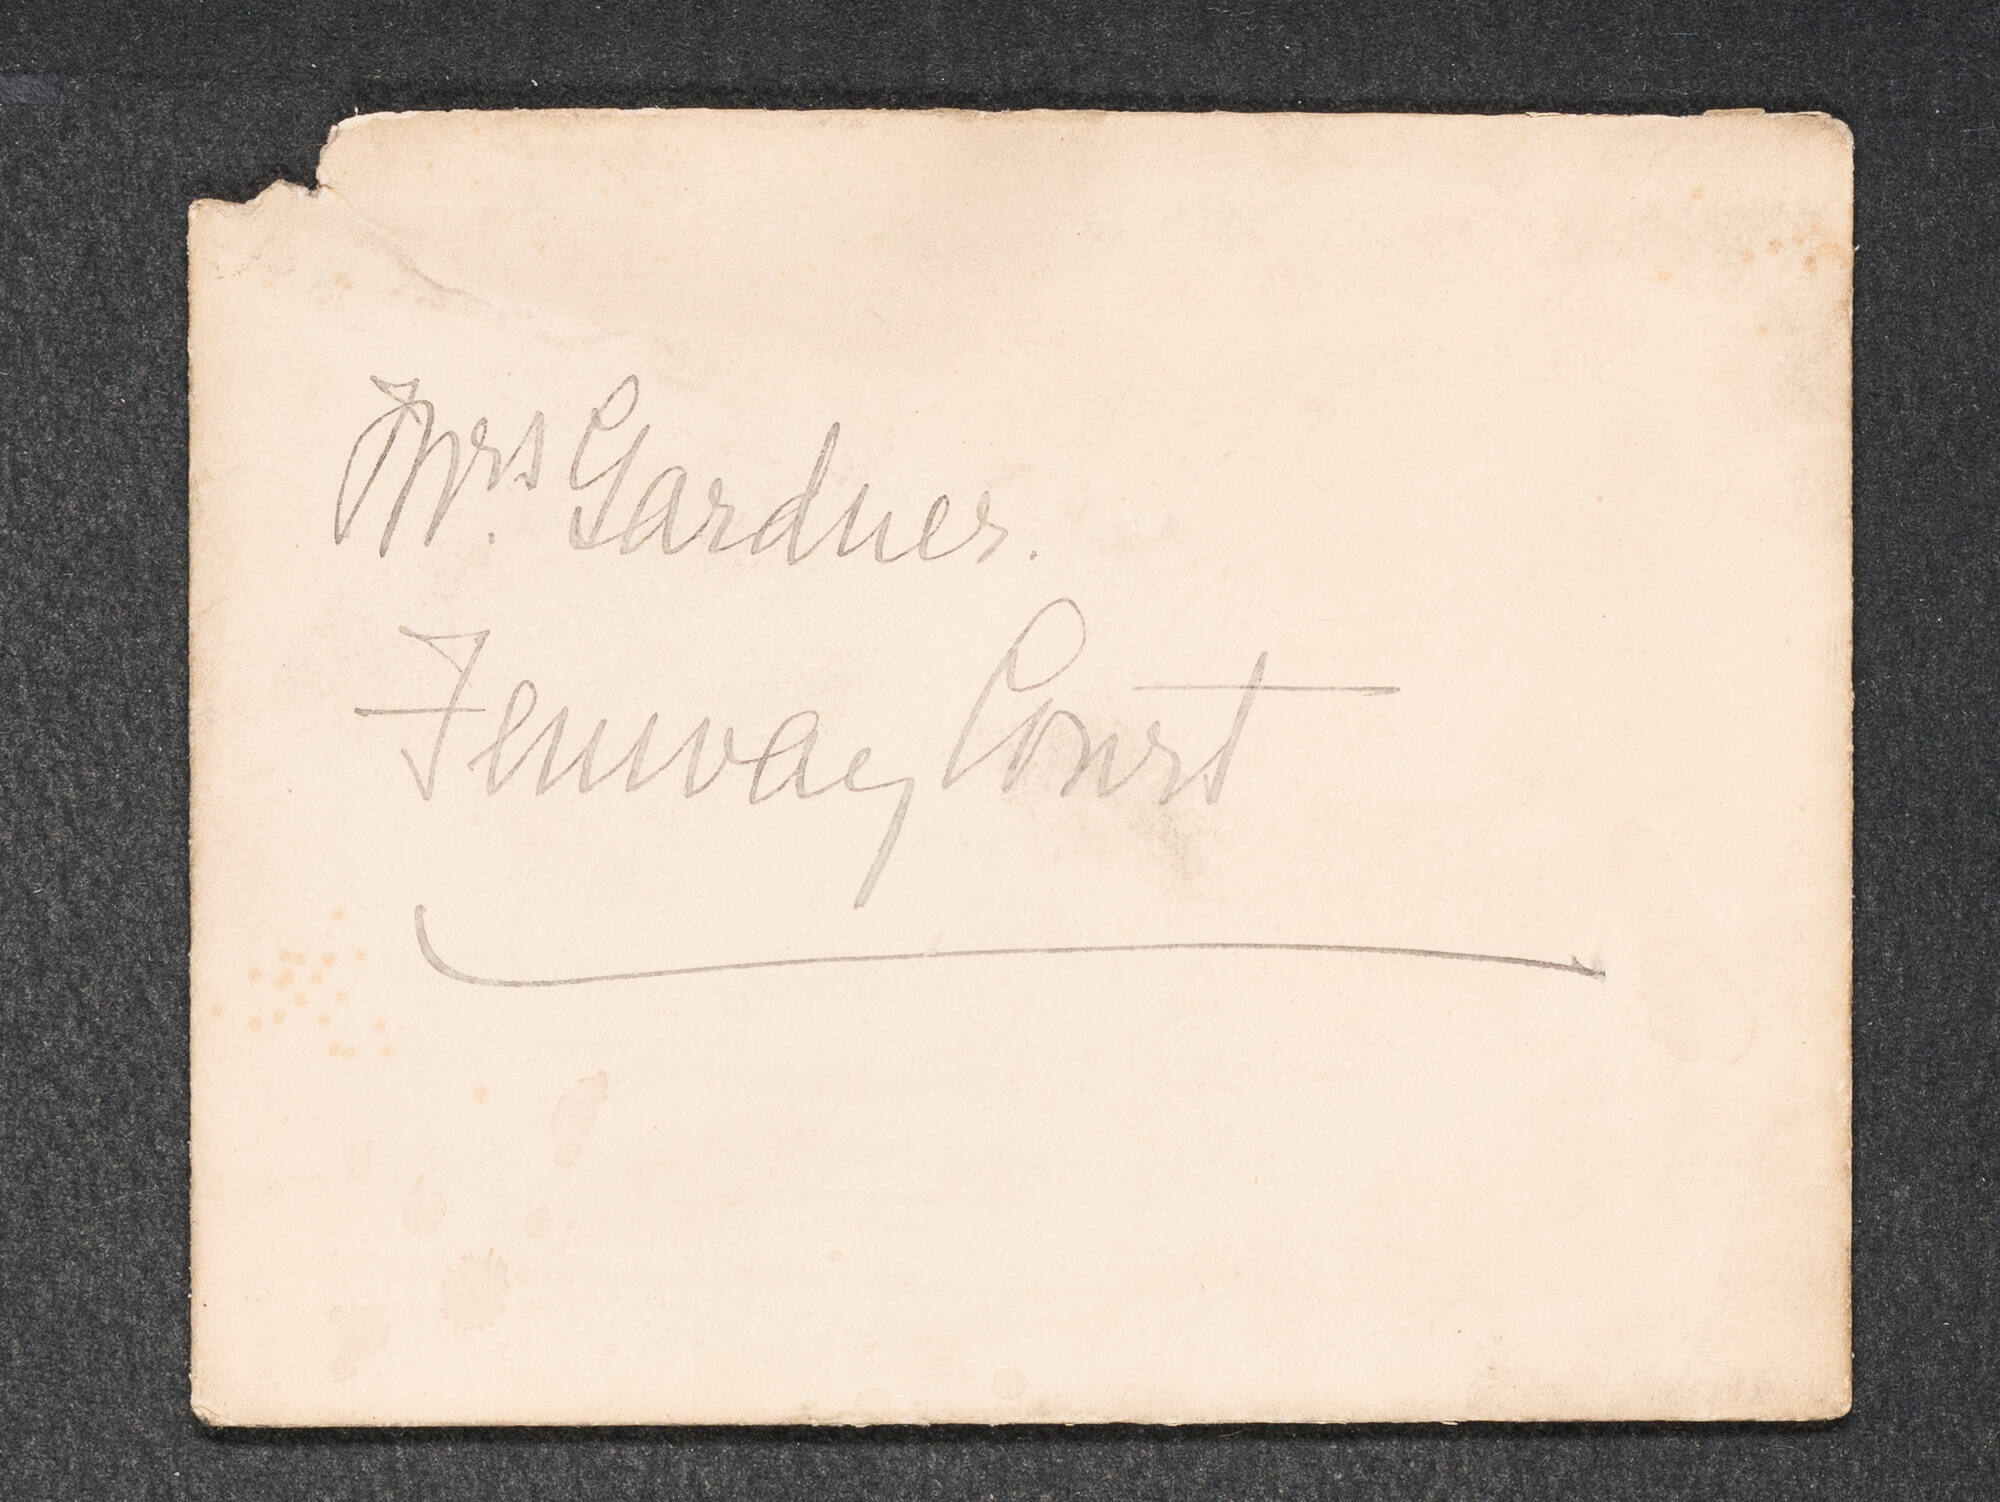 Mrs. Gardner.
Fenway Court